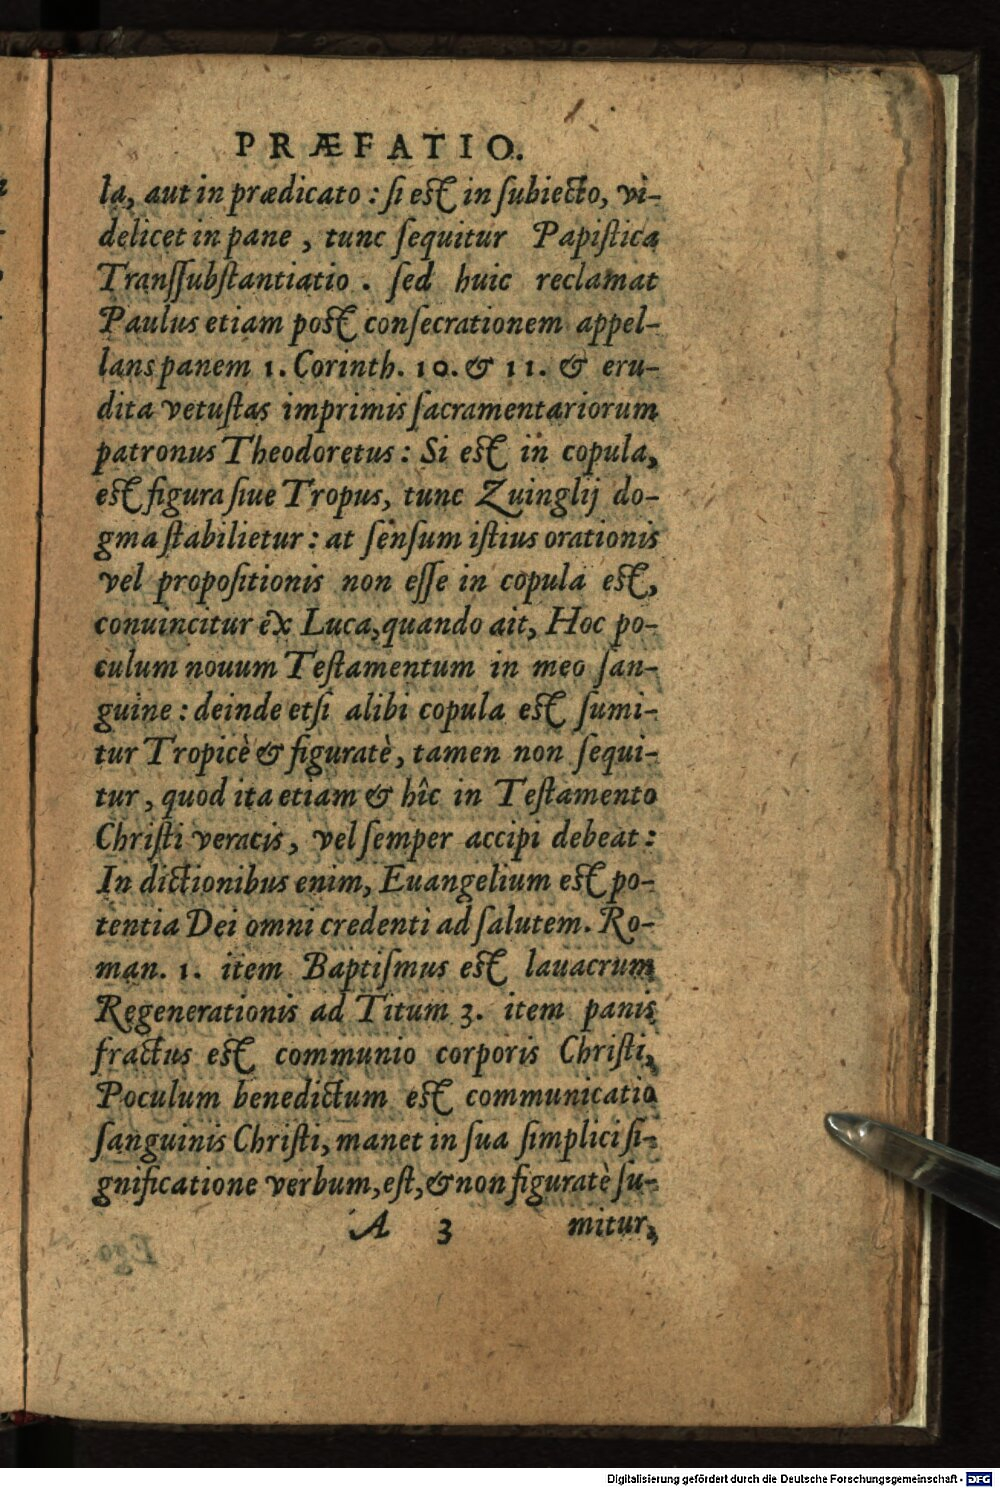 PRÆFATIO.
la, aut in prædicato : si est in subiecto, vi-
delicet in pane , tunc sequitur Papistica
Transsubstantiatio . sed huic reclamat
Paulus etiam post consecrationem appel-
lans panem 1. Corinth. 10. & 11. & eru-
dita vetustas imprimis sacramentariorum
patronus Theodoretus : Si est in copula,
est figura siue Tropus, tunc Zuinglij do-
gma stabilietur : at sensum istius orationis
vel propositionis non esse in copula est,
conuincitur ex Luca, quando ait, Hoc po-
culum nouum Testamentum in meo san-
guine : deinde etsi alibi copula est sumi-
tur Tropicè & figuratè, tamen non sequi-
tur, quod ita etiam & hîc in Testamento
Christi veracis, vel semper accipi debeat :
In dictionibus enim, Euangelium est po-
tentia Dei omni credenti ad salutem. Ro-
man. 1. item Baptismus est lauacrum
Regenerationis ad Titum 3. item panis
fractus est communio corporis Christi,
Poculum benedictum est communicatio
sanguinis Christi, manet in sua simplici si-
gnificatione verbum, est, & non figuratè su-
A 3 mitur,
Digitalisierung gefördert durch die Deutsche Forschungsgemeinschaft - DFG